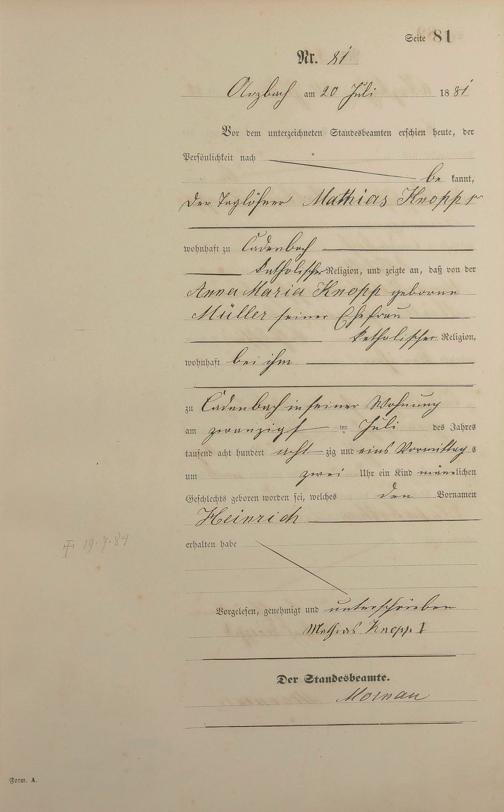 Seite 81
Nr. 81
Arzbach am 20 Juli 1881
Vor dem unterzeichneten Standesbeamten erschien heute, der
Persönlichkeit nach
be kannt,
der Taglöhner Mathias Knopp
wohnhaft zu Cadenbach
katholischer Religion, und zeigte an, daß von der
Anna Maria Knopp geborene
Müller seiner Ehefrau
katholischer Religion,
wohnhaft bei ihm
zu Cadenbach in seiner Wohnung
am zwanzigst ten Juli des Jahres
tausend acht hundert acht zig und eins Vormittag s
um zwei Uhr ein Kind männlichen
Geschlechts geboren worden sei, welches den Vornamen
Heinrich
erhalten habe
19.7.84
Vorgelesen, genehmigt und unterschrieben
Mathias Knopp I
Der Standesbeamte.
Form. A.